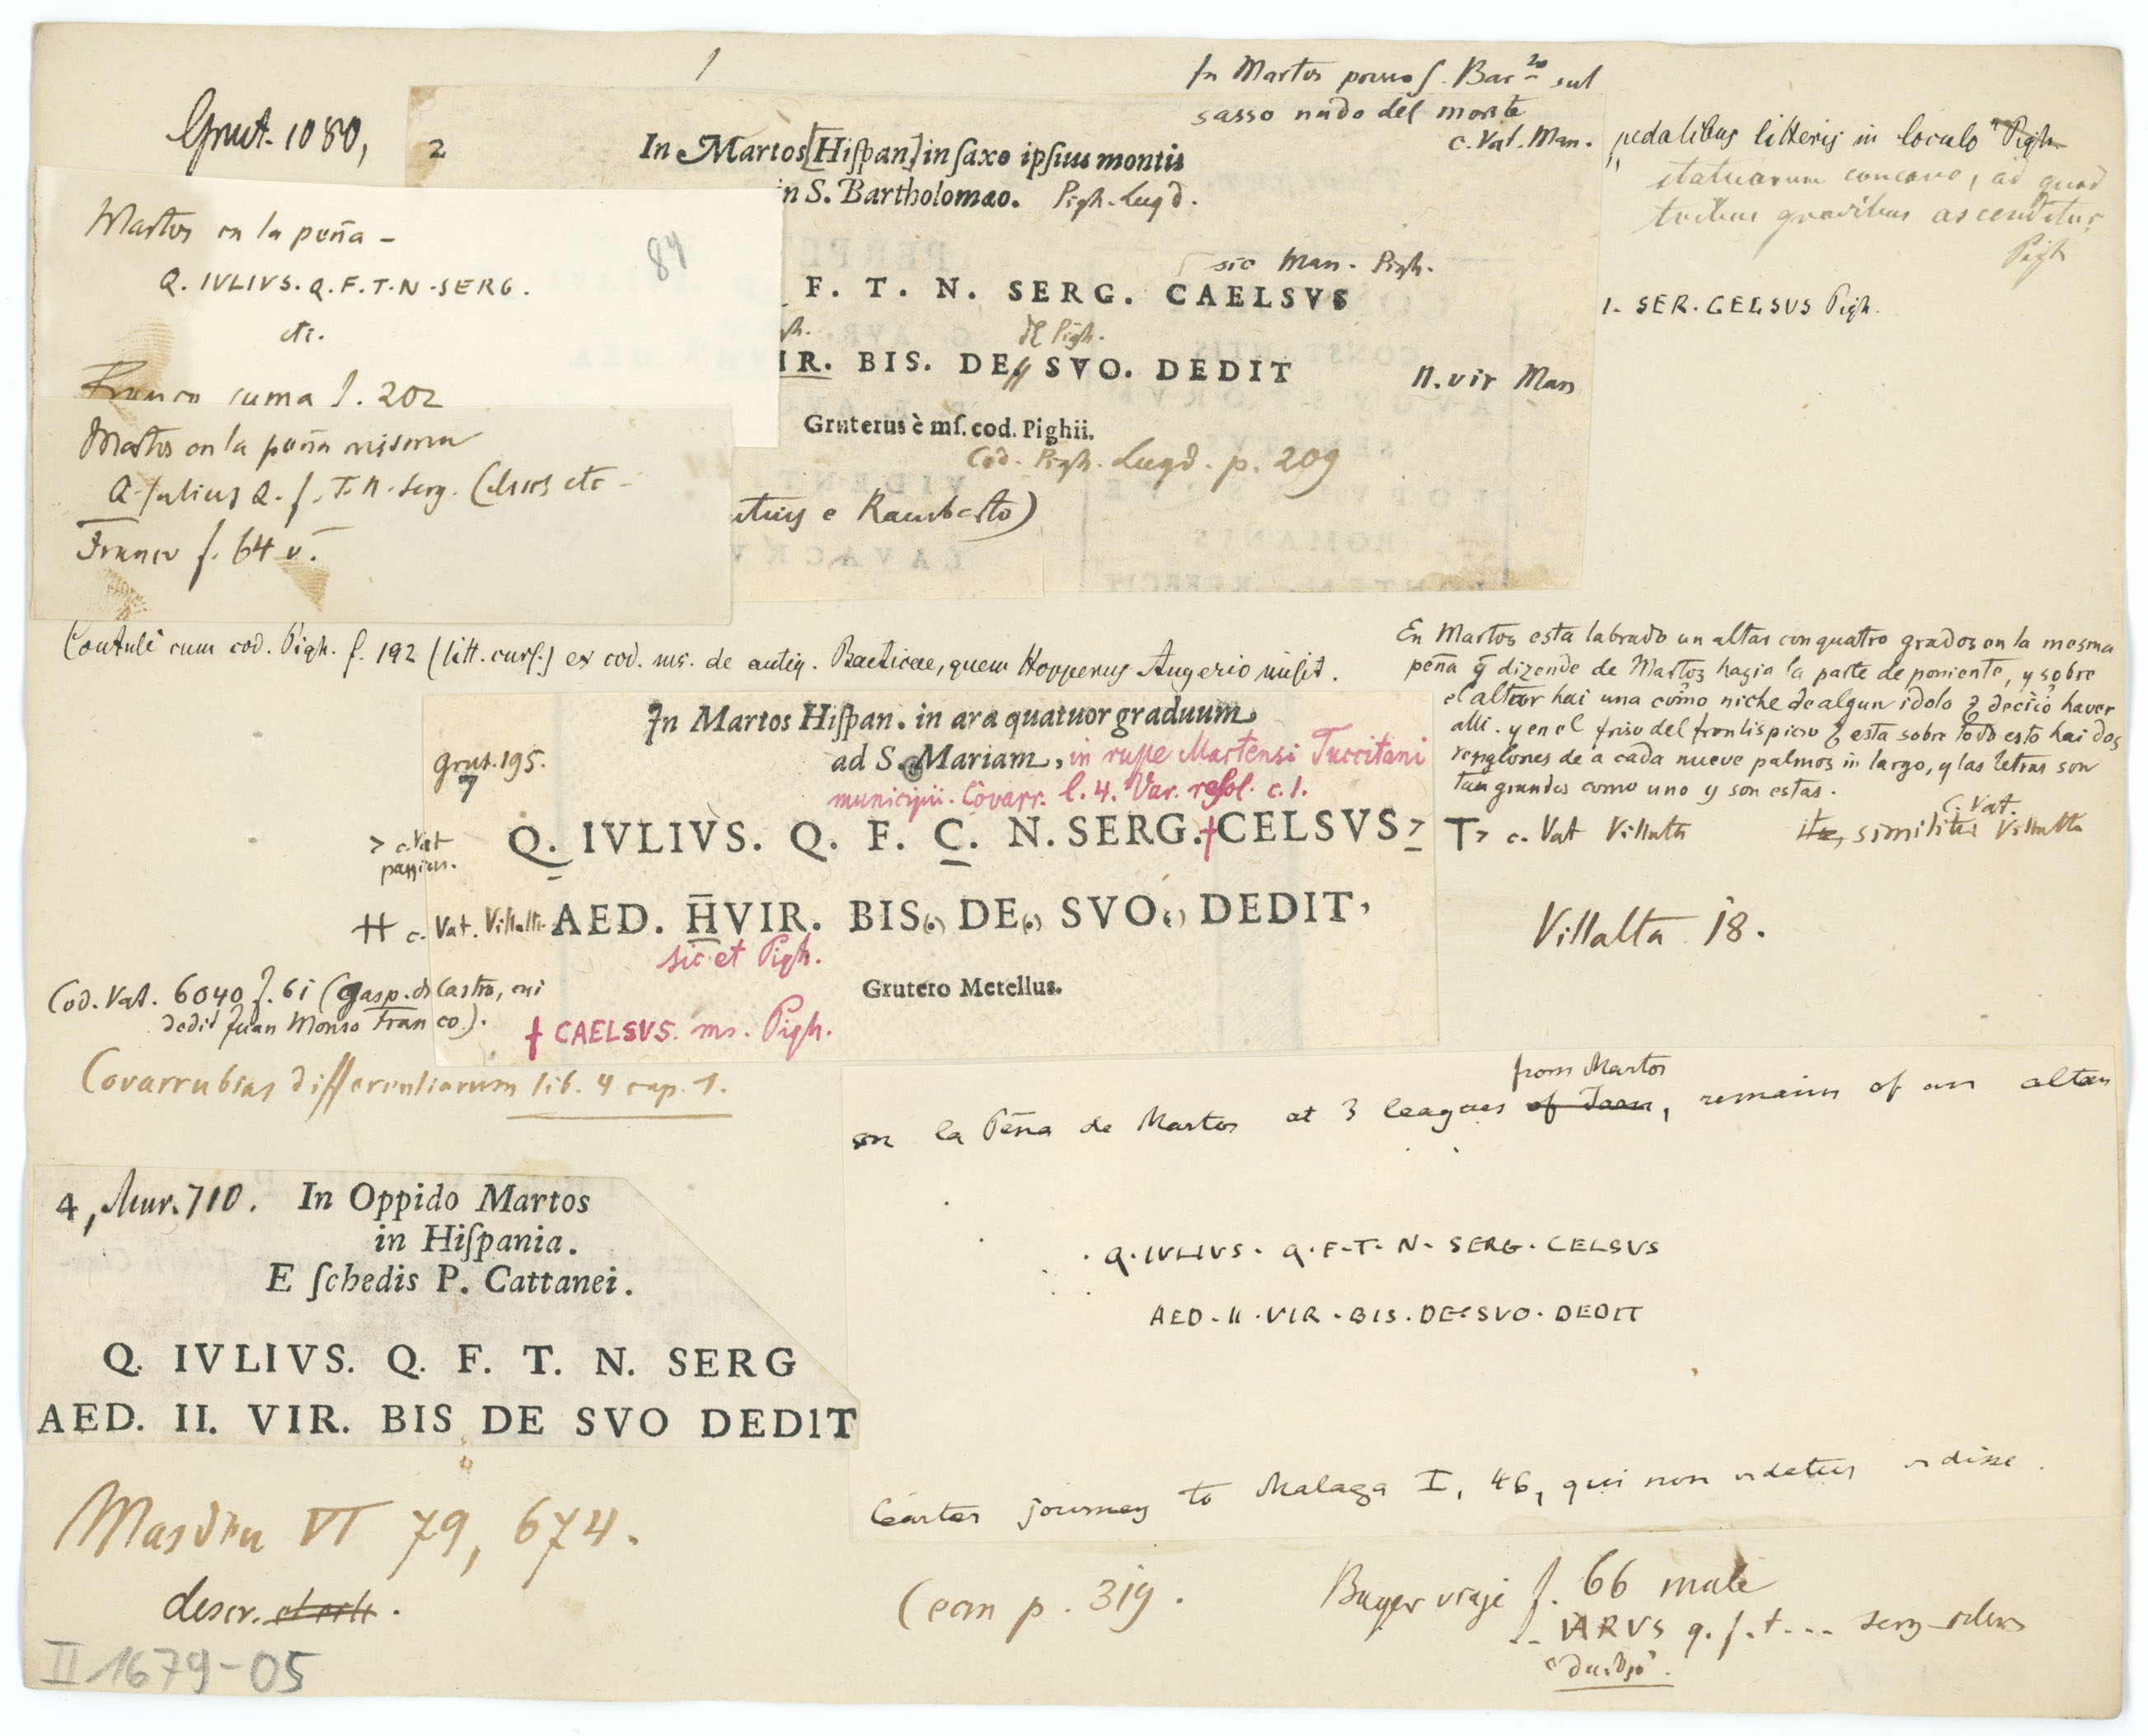 1
Grut. 1080,
2
In Martos [Hiſpan] in ſaxo ipſius montis
in S. Bartholomæo. Pigh. Lugd.
In Martos S. Bar sul
sasso nudo del monte
c. Vat. Man.
pedalibus litteris in loculo Pigh
statuarum concavo, ad quod
gradibus ascenditur,
Pigh
Martos en la peña -
84
Q. IVLIVS. Q. F. T. N. SERG.
etc.
Franco suma f. 202
sic Man. Pigh.
F. T. N. SERG. CAELSVS
1. SER. CELSVS Pigh.
Pigh.
IR. BIS. DE SVO. DEDIT
II. vir Man
Gruterus è mſ. cod. Pighii.
Cod. Pigh. Lugd. p. 209
e Ramberto)
Martos en la peña misma
Q. Julius Q. f. T. N. Serg. Celsus etc -
Franco f. 64 v.
Contuli cum cod. Pigh. f. 192 (litt. curs.) ex cod. ms. de antiq. Baeticae, quem Hopperus Augerio misit.
En Martos esta labrado un altar con quatro grados en la mesma
peña q̃ dizende de Martos hazia la parte de poniente, y sobre
el altar hai una como niche de algun idolo haver
alli. y en el friso del frontispicio q̃ esta sobre todo esto hai dos
renglones de a cada nueve palmos in largo, y las letras son
tan grandes como uno y son estas.
In Martos Hiſpan. in ara quatuor graduum
ad S. Mariam, in rupe Martensi Tuccitani
municipii. Covarr. l. 4. Var. resol. c. 1.
Grut. 195.
7
> c. Vat
Q. IVLIVS. Q. F. C. N. SERG. † CELSVS >
T> c. Vat Villalta
similiter c. Vat. Villalta
H c. Vat. Villalt.
AED. H̅VIR. BIS. DE. SVO. DEDIT,
sic et Pigh.
Villalta 18.
Grutero Metellus.
Cod. Vat. 6040 f. 61 (Gasp. di Castro, cui
dedit Juan Alonso Franco).
† CAELSVS. ms. Pigh.
Covarrubias differentiarum lib. 4 cap. 1.
on la Peña de Martos at 3 leagues of Jaen, from Martos remains of an altar
Q. IVLIVS. Q. F. T. N. SERG. CELSVS
AED. II. VIR. BIS. DE SVO. DEDIT
Carter journey to Malaga I, 46, qui non videtur vidisse.
4, Mur. 710. In Oppido Martos
in Hiſpania.
E ſchedis P. Cattanei.
Q. IVLIVS. Q. F. T. N. SERG
AED. II. VIR. BIS DE SVO DEDIT
Masdeu VI 79, 674.
descr.
Cean p. 319.
Bayer viaje f. 66 male
ARVS q. f. t... serg
II 1679-05